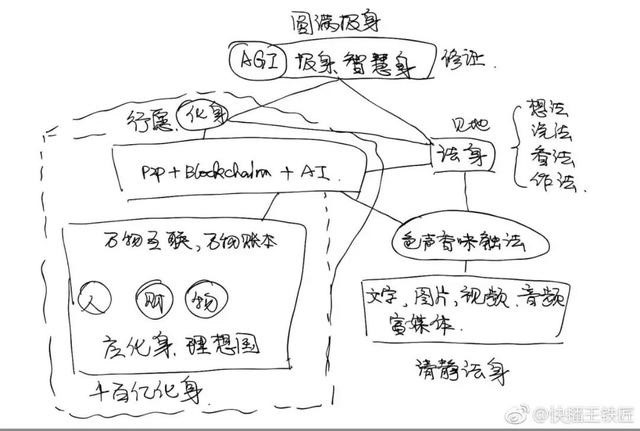 圆满报身
AGI 报身 智慧身 修证
行愿 化身
见地
法身
想法
说法
看法
作法
P2P + Blockchain + AI
万物互联, 万物账本
人 财 物
应化身 理想国
千百亿化身
色声香味触法
文字, 图片, 视频, 音频
富媒体
清静法身
@快播王铁匠